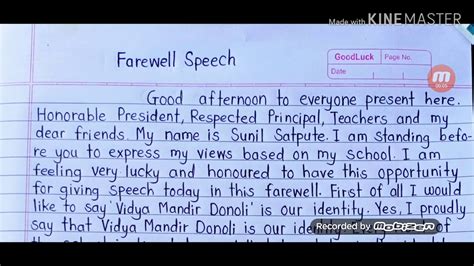 Made with KINEMASTER
Farewell Speech
GoodLuck Page No.
Date
M
00:05
Good afternoon to everyone present here.
Honorable President, Respected Principal, Teachers and my
dear friends. My name is Sunil Satpute. I am standing befo-
re you to express my views based on my school. I am
feeling very lucky and honoured to have this opportunity
for giving speech today in this farewell. First of all I would
like to say 'Vidya Mandir Donoli' is our identity. Yes, I proudly
say that Vidya Mandir Donoli is our identity
Recorded by Mobizen